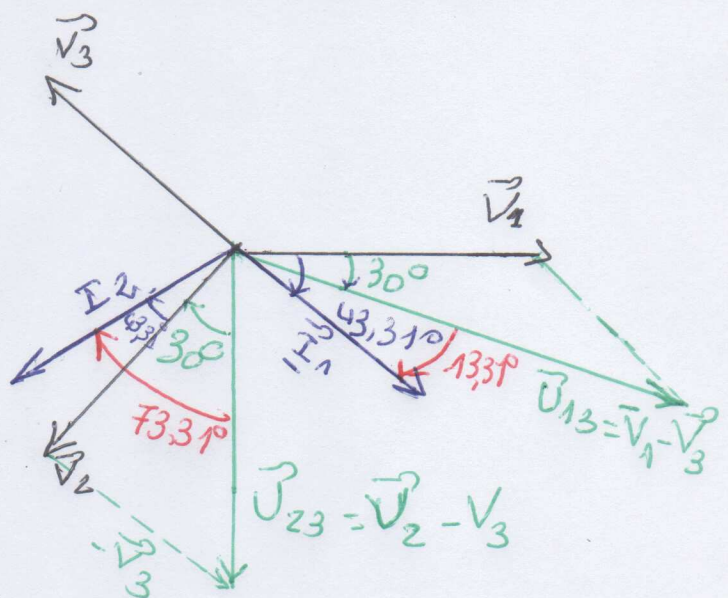 V⃗₃
V⃗₁
30°
I⃗₂
43,31°
30°
I⃗₁
43,31°
13,31°
U⃗₁₃ = V⃗₁ - V⃗₃
73,31°
V⃗₂
U⃗₂₃ = V⃗₂ - V₃
-V⃗₃